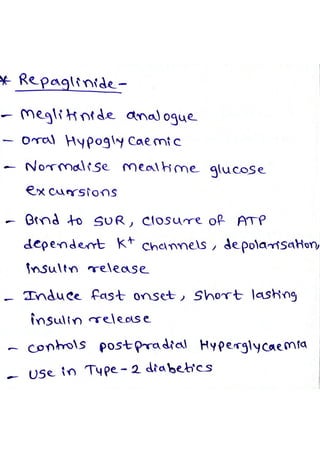 * Repaglinide -
- Meglitinide analogue
- Oral Hypoglycaemic
- Normalise mealtime glucose
excursions
- Bind to SUR, closure of ATP
dependent K+ channels, depolarisation,
insulin release
- Induce fast onset, short lasting
insulin release
- controls postpradial Hyperglycaemia
- Use in Type-2 diabetics